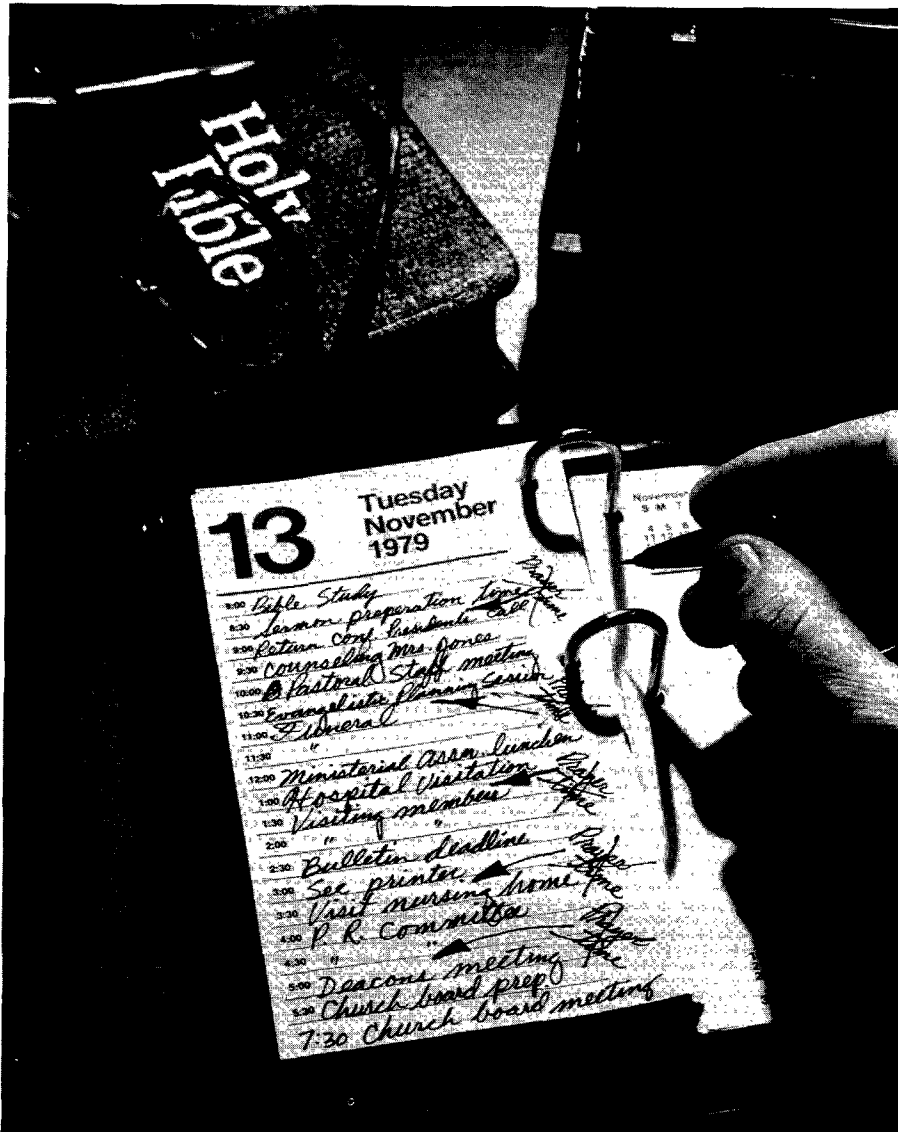 Holy
Bible
13
Tuesday
November
1979
November
S M T
4 5 6
11 12
8:00 Bible Study
8:30 Sermon preparation time
9:00 Return Conf. Presidents Call
9:30 Counseling Mrs. Jones
10:00 Pastoral Staff meeting
10:30 Evangelistic Planning Session
11:00 Funeral
11:30 "
12:00 Ministerial Assn. luncheon
1:00 Hospital Visitation
1:30 Visiting members
2:00 " "
2:30 Bulletin deadline
3:00 See printer
3:30 Visit nursing home
4:00 P. R. Committee
4:30 " "
5:00 Deacons meeting
5:30 Church board prep
7:30 Church board meeting
Prayer
time
Prayer
time
Prayer
time